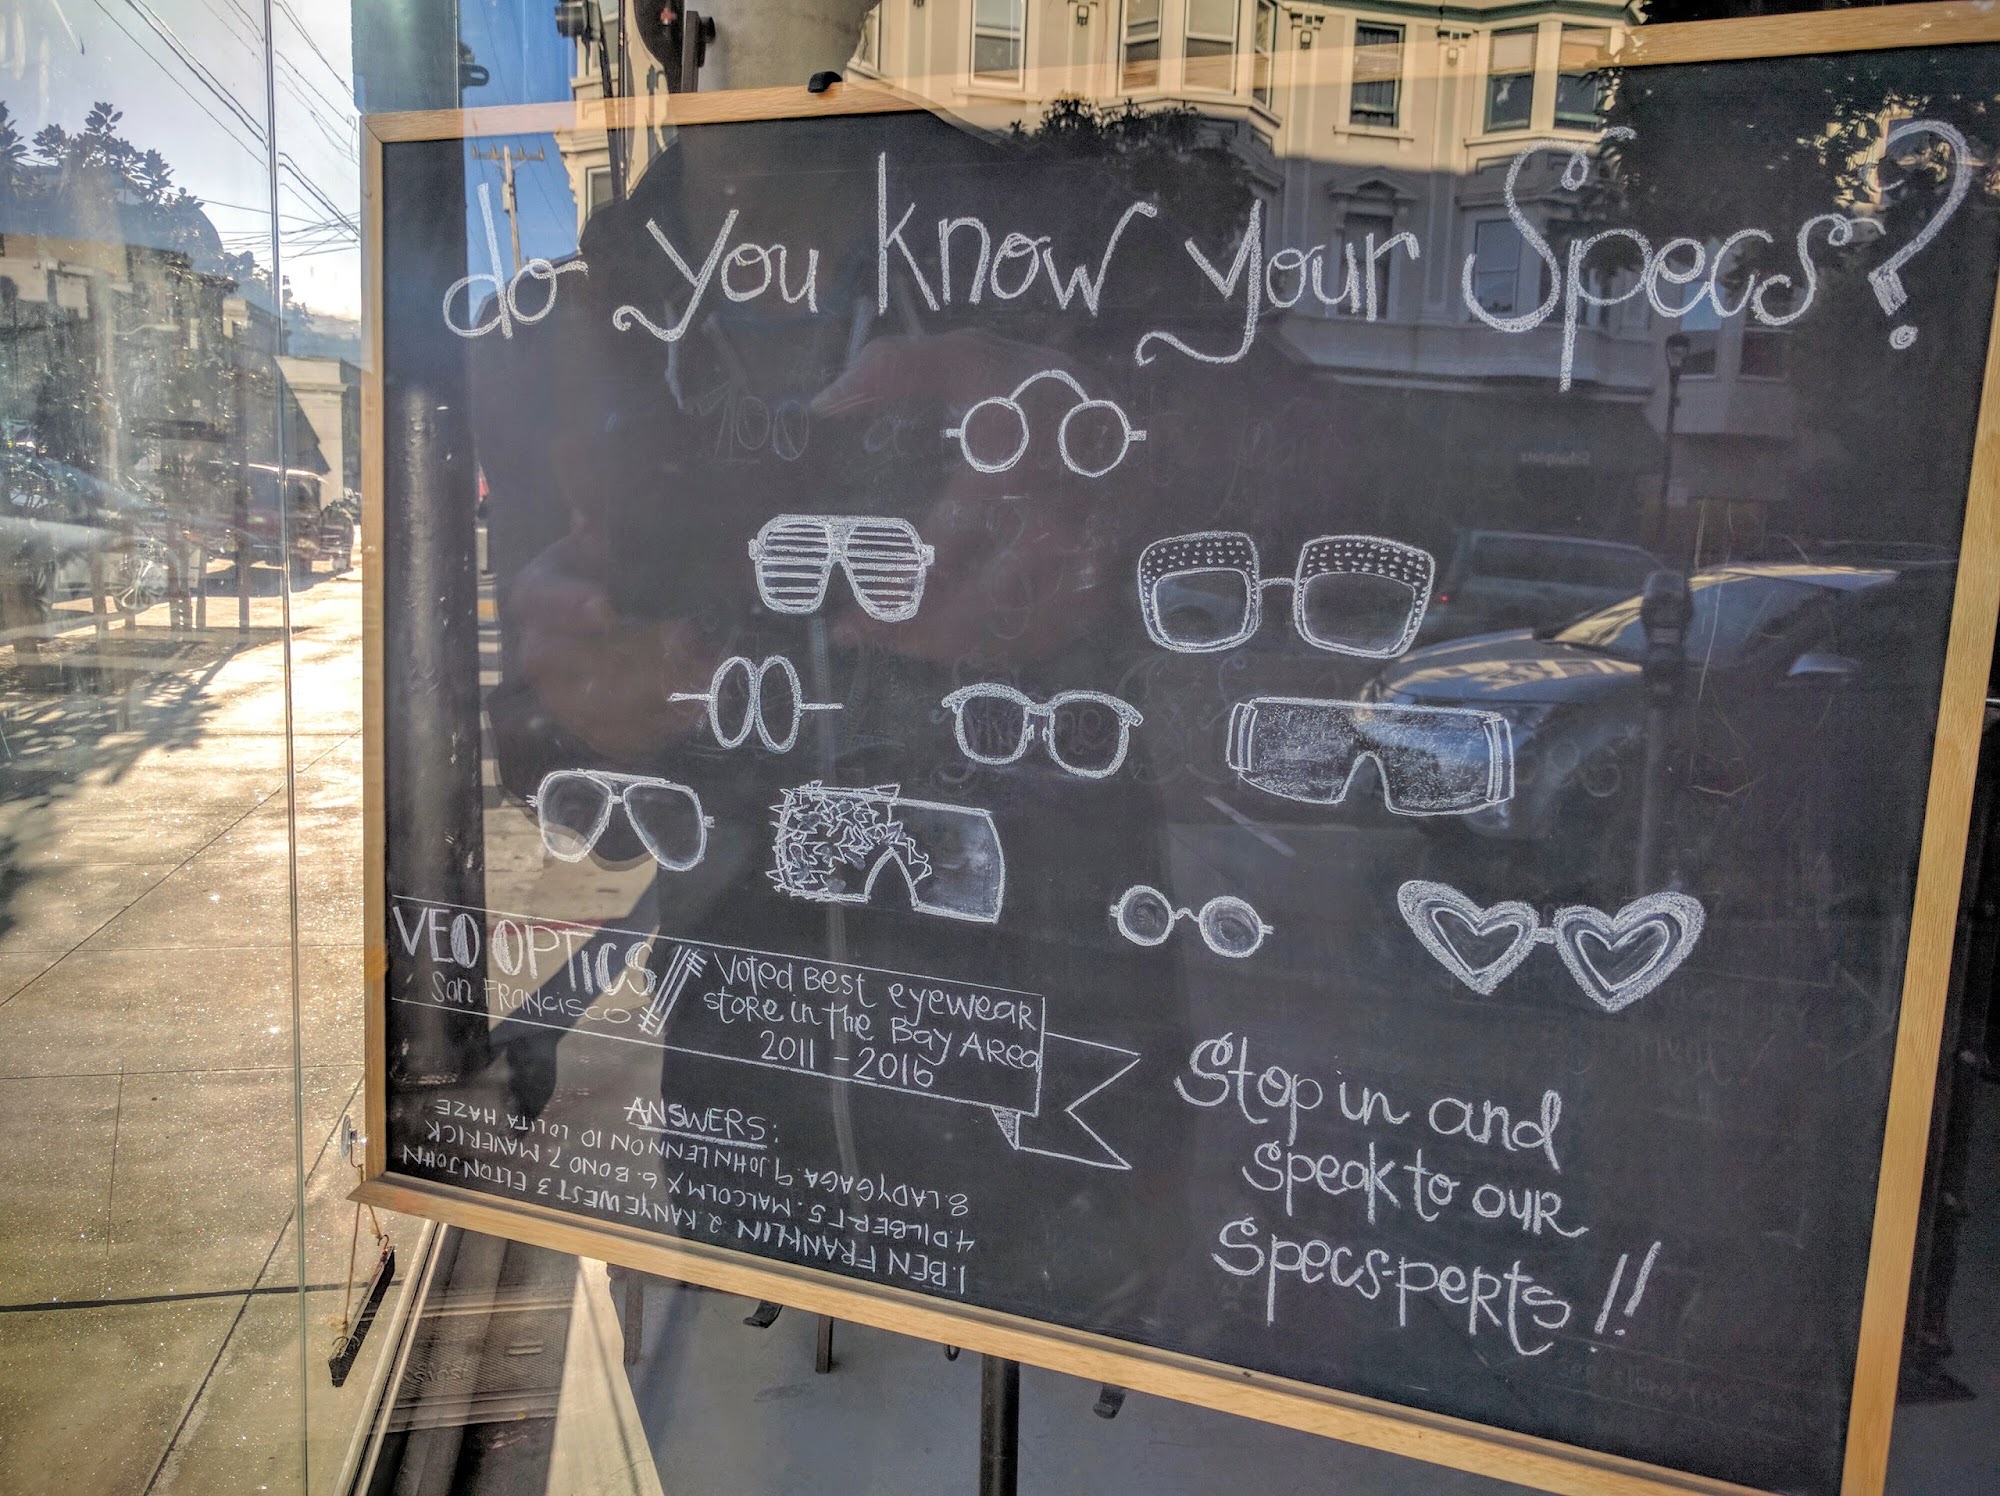 do you know your Specs?
VEO OPTICS
San FRANCISCO
Voted Best eyewear
store in the Bay Area
2011 - 2016
ANSWERS:
1. BEN FRANKLIN 2. KANYE WEST 3 ELTON JOHN
4. DILBERT 5. MALCOLM X 6. BONO 7. MAVERICK
8. LADY GAGA. 9 JOHN LENNON 10 LOLITA HAZE
Stop in and
Speak to our
Specs-perts!!